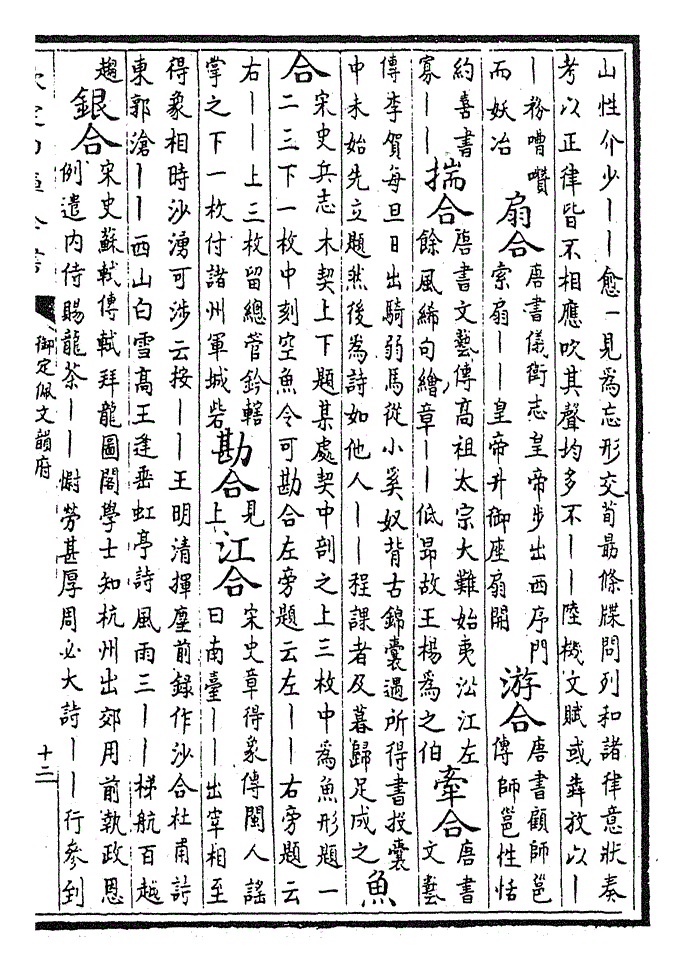 山性介少丨丨愈一見為忘形交荀勗條牒問列和諸律意狀奏
考以正律皆不相應吹其聲均多不丨丨陸機文賦或犇放以丨
丨務嘈囋
而妖冶
扇合
唐書儀衛志皇帝步出西序門
索扇丨丨皇帝升御座扇開
游合
唐書顧師邕
傳師邕性恬
約喜書
寡丨丨
揣合
唐書文藝傳高祖太宗大難始夷沿江左
餘風絺句繪章丨丨低昂故王楊為之伯
牽合
唐書
文藝
傳李賀每旦日出騎弱馬從小奚奴背古錦囊遇所得書投囊
中未始先立題然後為詩如他人丨丨程課者及暮歸足成之
魚
合
宋史兵志木契上下題某處契中剖之上三枚中為魚形題一
二三下一枚中刻空魚令可勘合左旁題云左丨丨右旁題云
右丨丨上三枚留總管鈐轄
掌之下一枚付諸州軍城砦
勘合
見
上
江合
宋史章得象傳閩人謠
曰南臺丨丨出宰相至
得象相時沙湧可涉云按丨丨王明清揮麈前錄作沙合杜甫詩
東郭滄丨丨西山白雪高王逢垂虹亭詩風雨三丨丨梯航百越
趨
銀合
宋史蘇軾傳軾拜龍圖閣學士知杭州出郊用前執政恩
例遣内侍賜龍茶丨丨慰勞甚厚周必大詩丨丨行參到
御定佩文韻府
十二